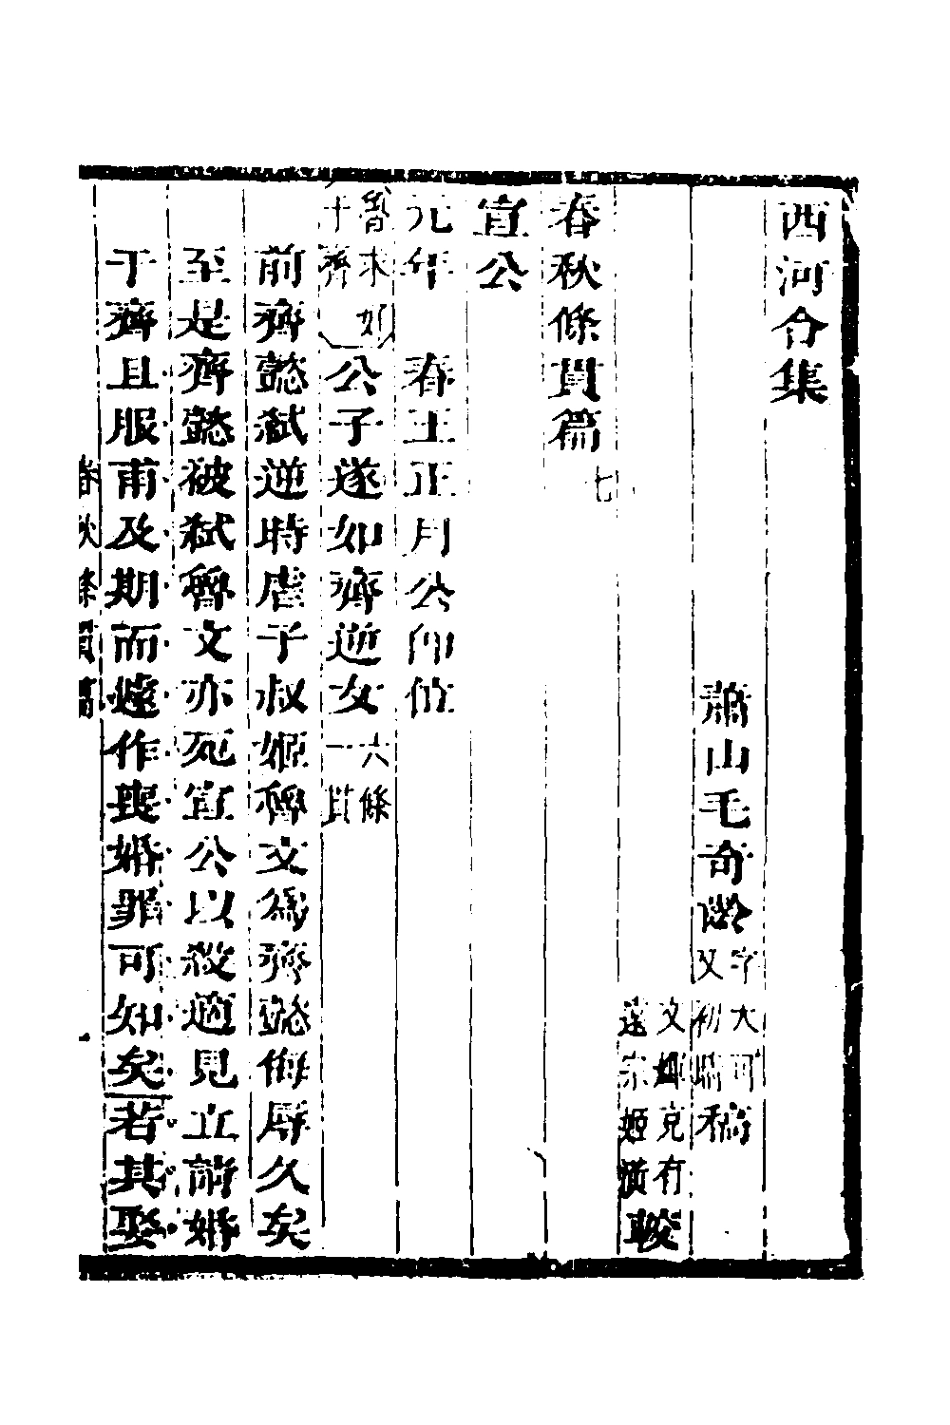 西河合集
蕭山毛奇齡字大可又初晴稿
文輝克有
遠宗姬潢較
春秋條貫篇七
宣公
元年　春王正月公卽位
公子遂如齊逆女六條一貫
前齊懿弑逆時虐子叔姬魯文爲齊懿侮辱久矣
至是齊懿被弑魯文亦死宣公以殺適見立請婚
于齊且服甫及期而遽作喪婚罪可如矣若其娶
春秋條貫篇